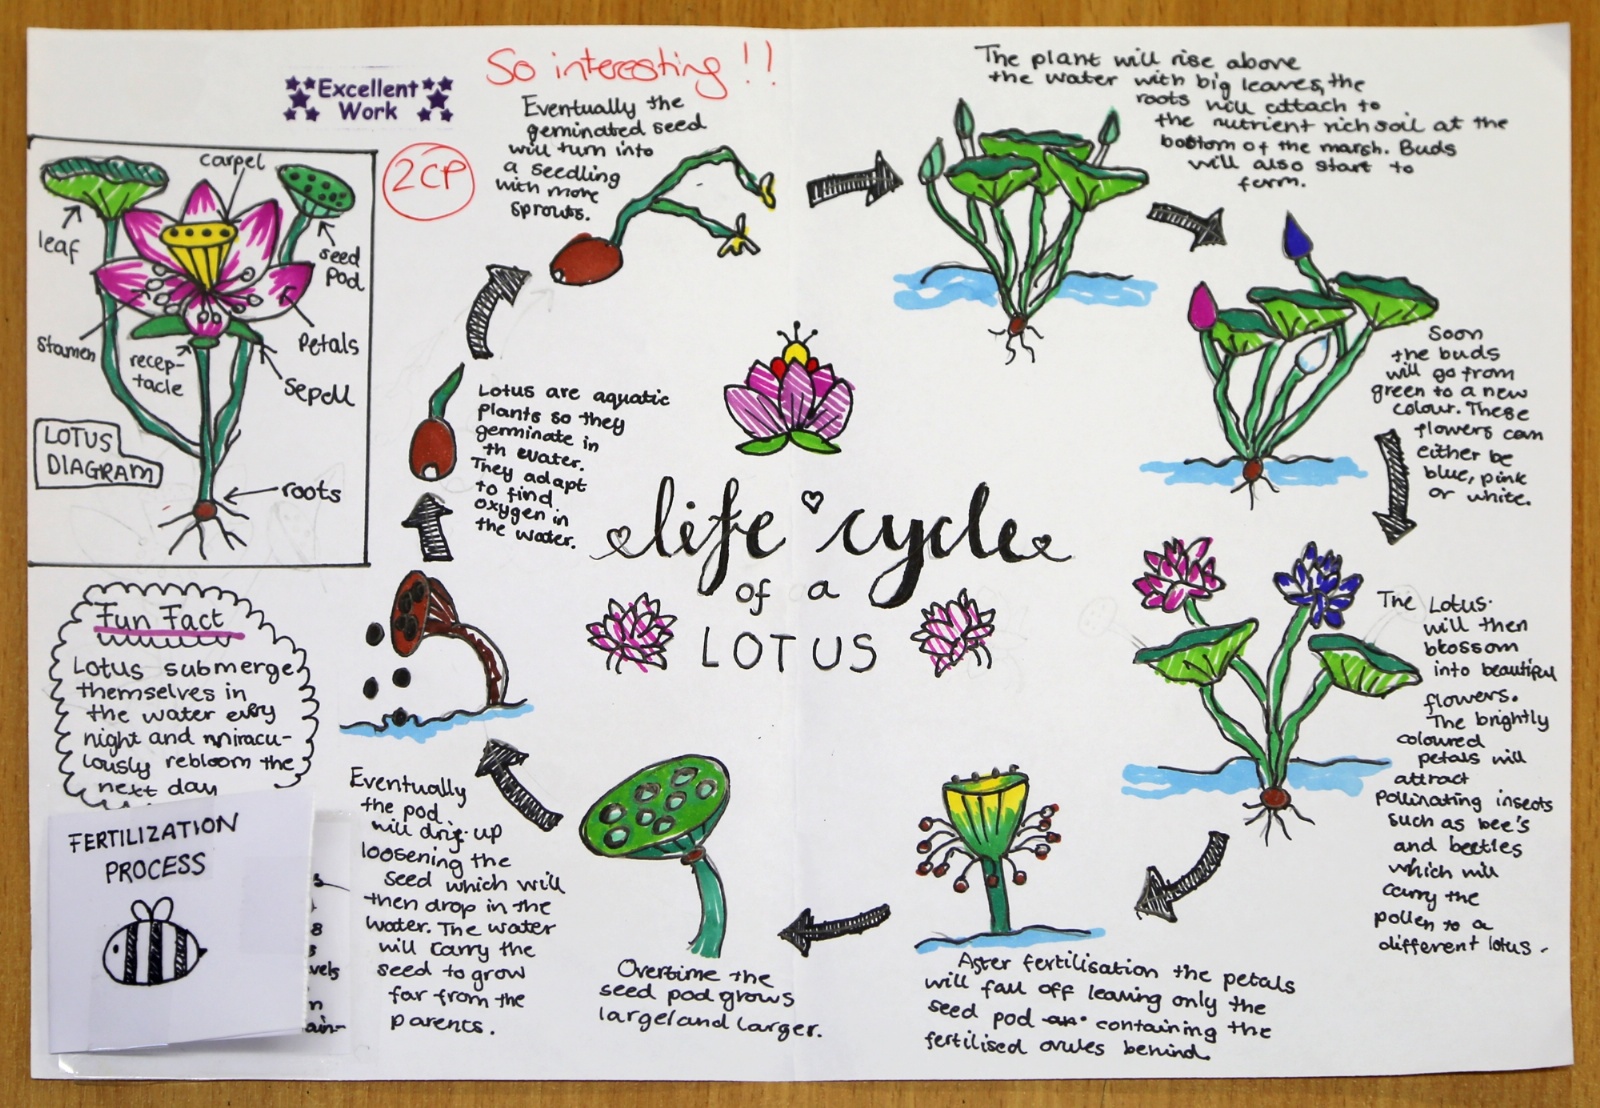 So interesting!!
Excellent
Work
2CP
carpel
leaf
seed
pod
stamen
recep-
tacle
Petals
Sepall
LOTUS
DIAGRAM
roots
Fun Fact
Lotus submerge
themselves in
the water every
night and miracu-
lously rebloom the
next day
FERTILIZATION
PROCESS
s
8
s
vels
n
ain-
life cycle
of a
LOTUS
Lotus are aquatic
plants so they
germinate in
th water.
They adapt
to find
oxygen in
the water.
Eventually the
geminated seed
will turn into
a seedling
with more
sprouts.
The plant will rise above
the water with big leaves, the
roots will attach to
the nutrient rich soil at the
bottom of the marsh. Buds
will also start to
form.
Soon
the buds
will go from
green to a new
colour. These
flowers can
either be
blue, pink
or white.
The Lotus
will then
blossom
into beautiful
flowers.
The brightly
coloured
petals will
attract
pollinating insects
such as bee's
and beetles
which will
carry the
pollen to a
different lotus.
After fertilisation the petals
will fall off leaving only the
seed pod containing the
fertilised ovules behind.
Overtime the
seed pod grows
larger and larger.
Eventually
the pod
will drie up
loosening the
seed which will
then drop in the
water. The water
will carry the
seed to grow
far from the
parents.